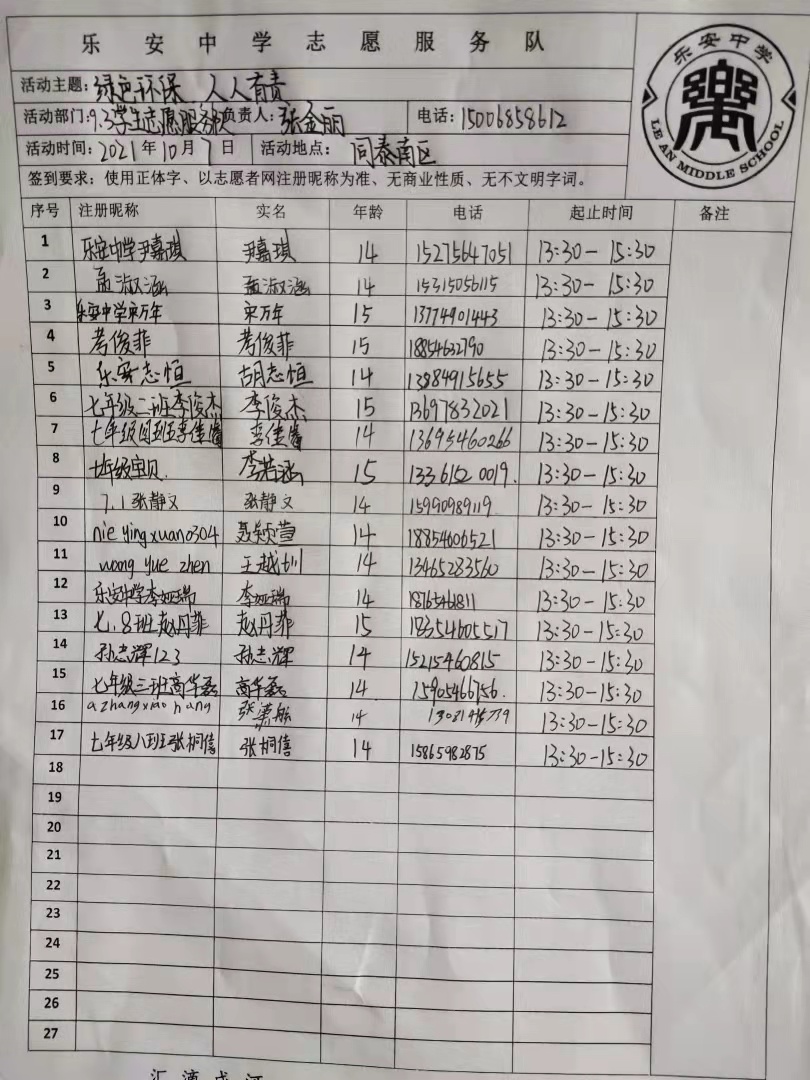 乐安中学志愿服务队
活动主题：绿色环保 人人有责
活动部门：9.3学生志愿服务队 负责人：张金丽 电话：15006858612
活动时间：2021年10月7日 活动地点：同泰南区
签到要求：使用正体字、以志愿者网注册昵称为准、无商业性质、无不文明字词。
乐安中学
LE AN MIDDLE SCHOOL
序号 注册昵称 实名 年龄 电话 起止时间 备注
1 乐安中学尹嘉琪 尹嘉琪 14 15275647051 13:30-15:30
2 孟淑涵 孟淑涵 14 15315056115 13:30-15:30
3 乐安中学宋万年 宋万年 15 13774901443 13:30-15:30
4 考俊菲 考俊菲 15 18854632790 13:30-15:30
5 乐安志恒 胡志恒 14 13984915655 13:30-15:30
6 七年级二班李俊杰 李俊杰 15 13697832021 13:30-15:30
7 七年级四班李佳 李佳 14 13695460266 13:30-15:30
8 七年级宝贝. 李若涵 15 13361520019. 13:30-15:30
9 7.1张静文 张静文 14 15990989119 13:30-15:30
10 nieyingxuan0304 聂颖萱 14 18854606521 13:30-15:30
11 wong yue zhen 王越圳 14 13465283560 13:30-15:30
12 乐安中学李娅瑞 李娅瑞 14 13:30-15:30
13 七.8班赵丹菲 赵丹菲 15 18354605517 13:30-15:30
14 孙志辉123 孙志辉 14 15215460815 13:30-15:30
15 七年级三班高华磊 高华磊 14 15905466756. 13:30-15:30
16 azhangxiaohang 张 14 13:30-15:30
17 七年级八班张桐僖 张桐僖 14 15865982875 13:30-15:30
18
19
20
21
22
23
24
25
26
27